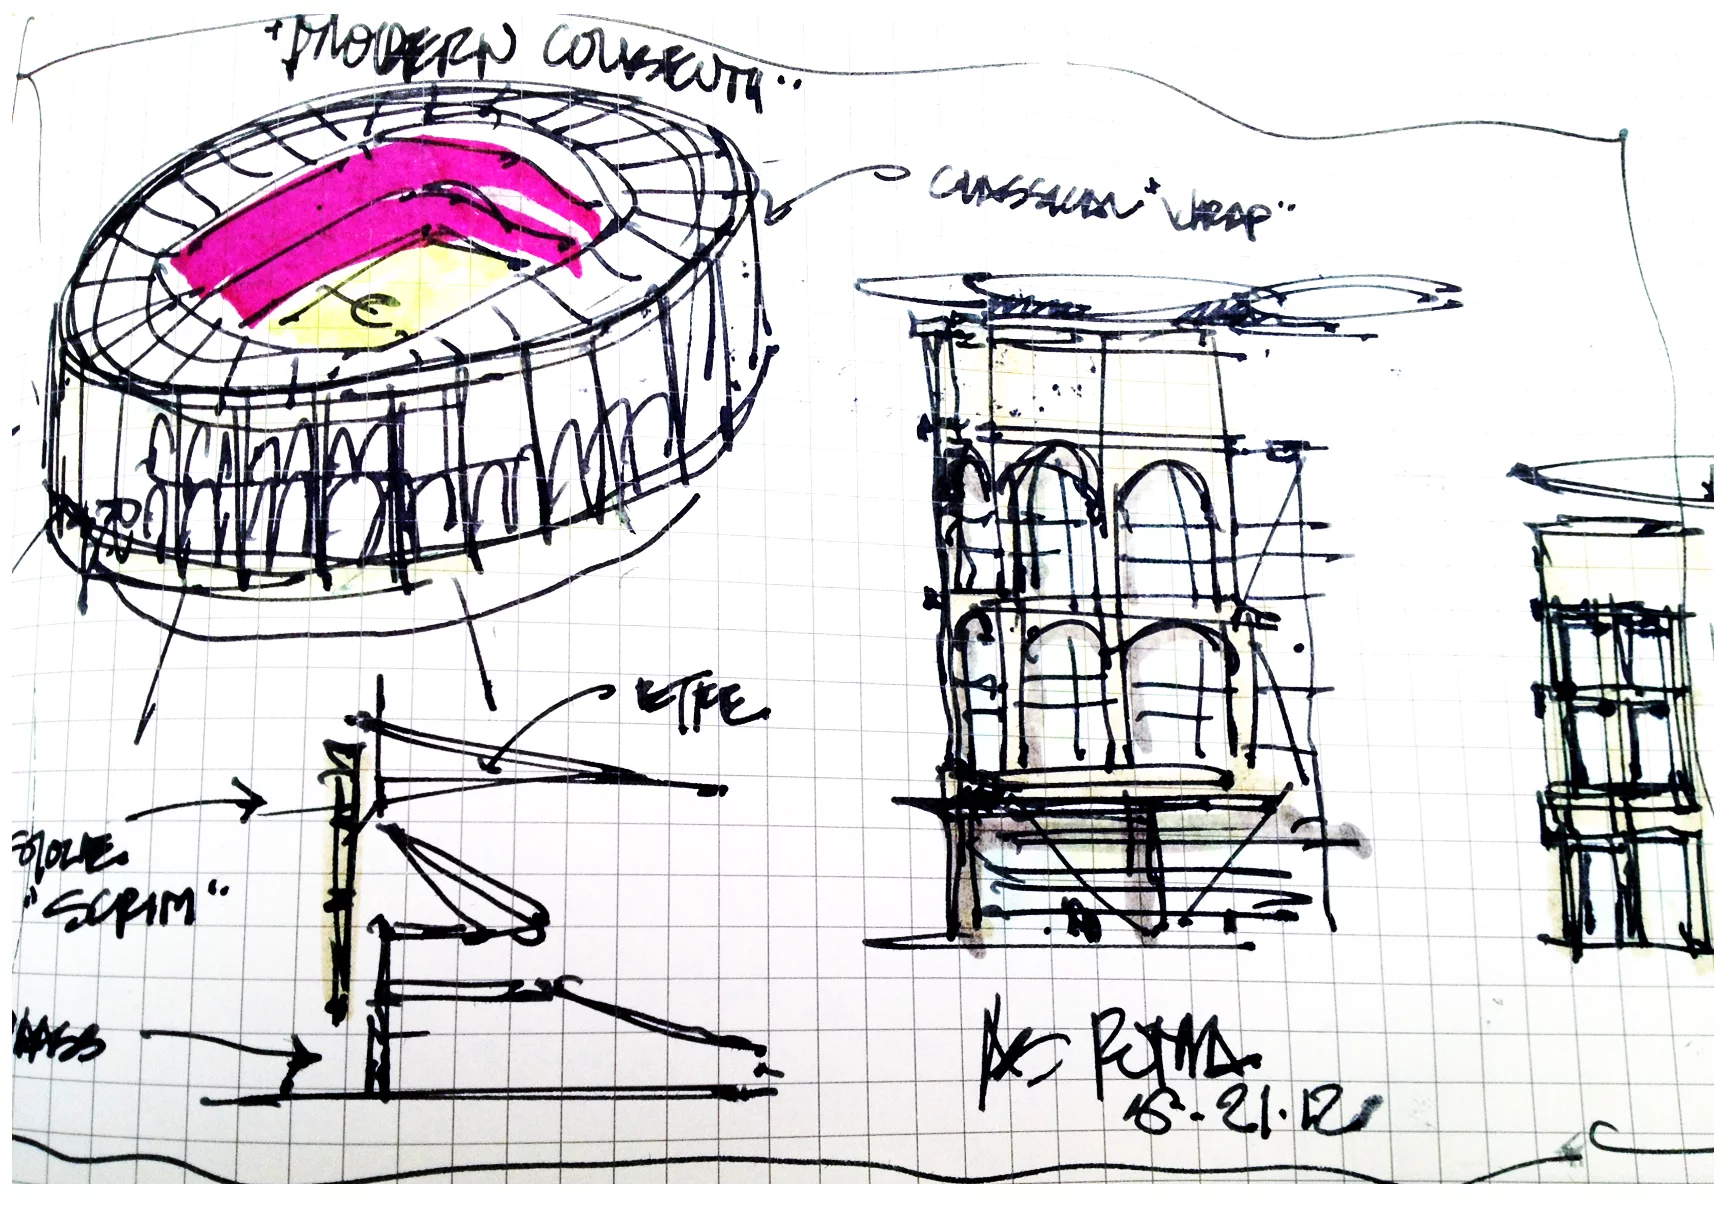 "MODERN COLISEUM"
CLASSICAL "WRAP"
ETFE
STONE
"SCRIM"
GLASS
AS ROMA
6.21.12